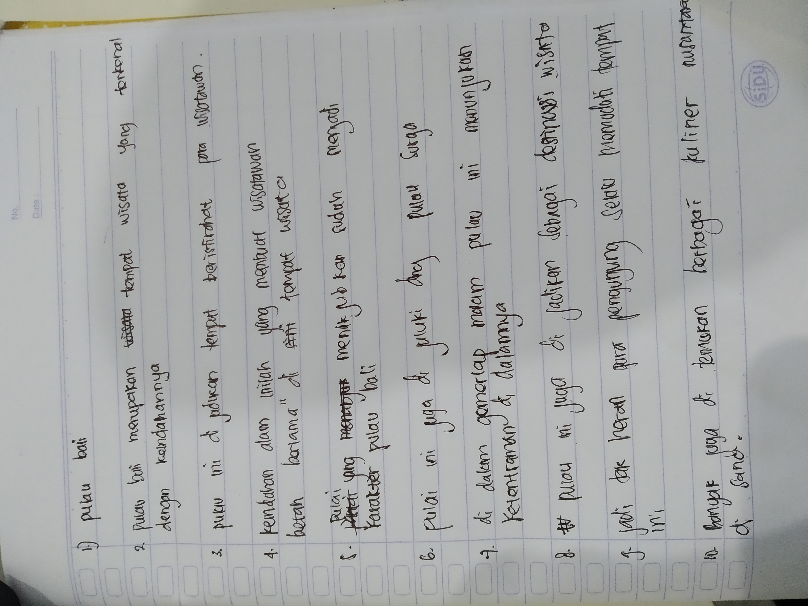 No.
Date:
1) pulau bali
2. pulau bali merupakan wisata tempat wisata yang terkenal
dengan keindahannya
3. pulau ini di jadikan tempat beristirahat para wisatawan.
4. keindahan alam inilah yang membuat wisatawan
betah berlama" di tempat wisata
5. pulai yang menakjubkan sudah menjadi
karakter pulau bali
6. pulai ini juga di juluki dng pulau surga
7. di dalam gemerlap malam pulau ini menunjukan
ketentraman di dalamnya
8. pulau ini juga di jadikan sebagai destinasi wisata
9. jadi tak heran para pengunjung selalu memadati tempat
ini
10. Banyak juga di temukan berbagai kuliner nusantara
di sana.
SiDU